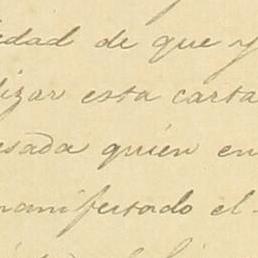 edad de que y
lizar esta carta
esada quien en
manifestado el